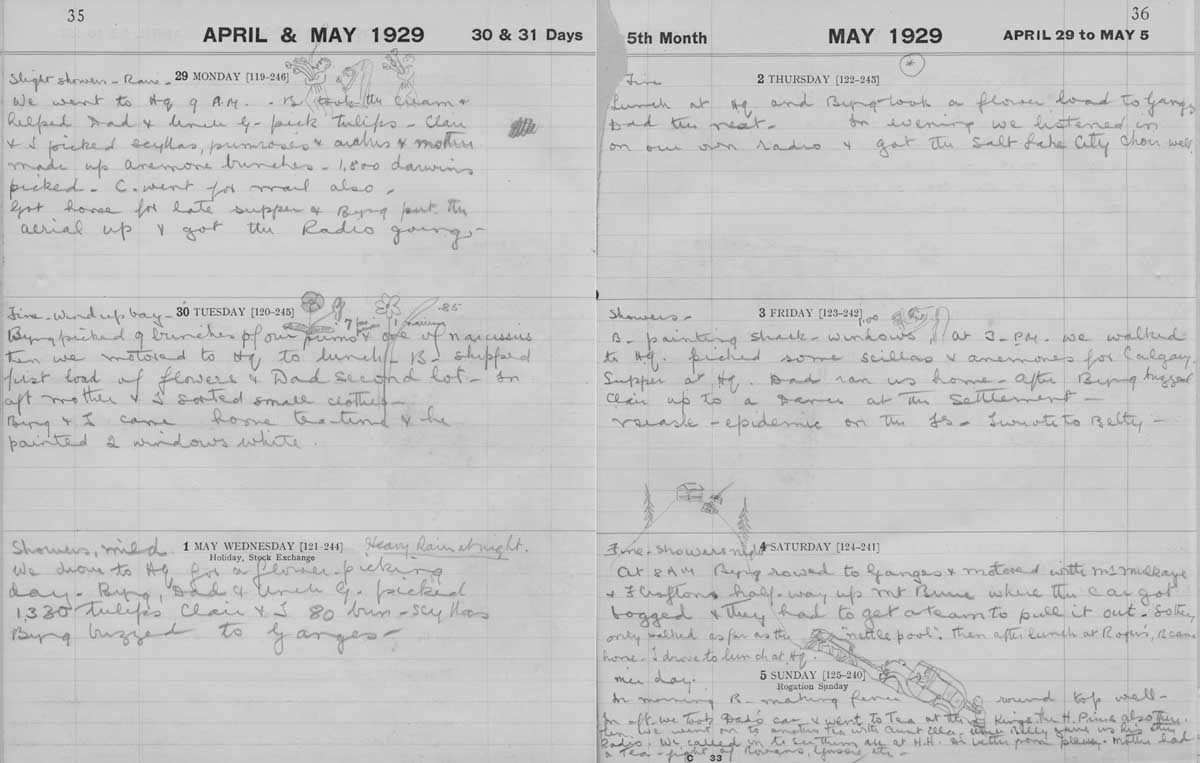 35
APRIL & MAY 1929
30 & 31 Days
Slight showers - Rain -
29 MONDAY [119-246]
We went to Hq 9 A.M. - B took the cream &
helped Dad & Uncle G - pick tulips - Clair
& I picked scyllas, primroses & arabis & mother
made up anemone bunches - 1,800 darwins
picked - C. went for mail also -
Got home for late supper & Byng put the
aerial up & got the Radio going -
Fine - Windup bay -
30 TUESDAY [120-245]
9
7
1
.85
Byng picked 9 bunches of our & one of narcissus
then we motored to Hq to lunch - B - shipped
first load of flowers & Dad second lot - In
aft mother & I sorted small clothes -
Byng & I came home tea-time & he
painted 2 windows white.
Showers, mild
1 MAY WEDNESDAY [121-244]
Heavy Rain at night.
Holiday, Stock Exchange
We drove to Hq for a flower-picking
day - Byng, Dad & Uncle G, picked
1,330 tulips Clair & I 80 bun - scyllas
Byng buzzed to Ganges -
36
5th Month
MAY 1929
APRIL 29 to MAY 5
Fine
2 THURSDAY [122-243]
*
Lunch at Hq and Byng took a flower load to Ganges
Dad the rest - In evening we listened in
on our own radio & got the Salt Lake City Choir well.
Showers -
3 FRIDAY [123-242]
1.00
B - painting shack - windows, at 3 - P.M. we walked
to Hq. picked some scillas & anemones for Calgary
Supper at Hq. Dad ran us home - After Byng buzzed
Clair up to a Dance at the Settlement -
- epidemic on the Is - I wrote to Betty -
Fine - showers night
4 SATURDAY [124-241]
At 8 A.M Byng rowed to Ganges & motored with
& F Croftons half-way up Mt Bruce where the car got
bogged & they had to get a team to pull it out: So they
only walked as far as the "nettle pool". Then after lunch at , B came
home - I drove to lunch at Hq.
5 SUNDAY [125-240]
Rogation Sunday
day.
In morning B - making fence round top well -
In aft we took Dad's car & went to Tea at the Kings, the H. also there.
then we went on to another tea with Aunt Ella - Uncle gave us his
Radio. We called in to see them all at H.H. - Mother had
a Tea - etc -
C 33